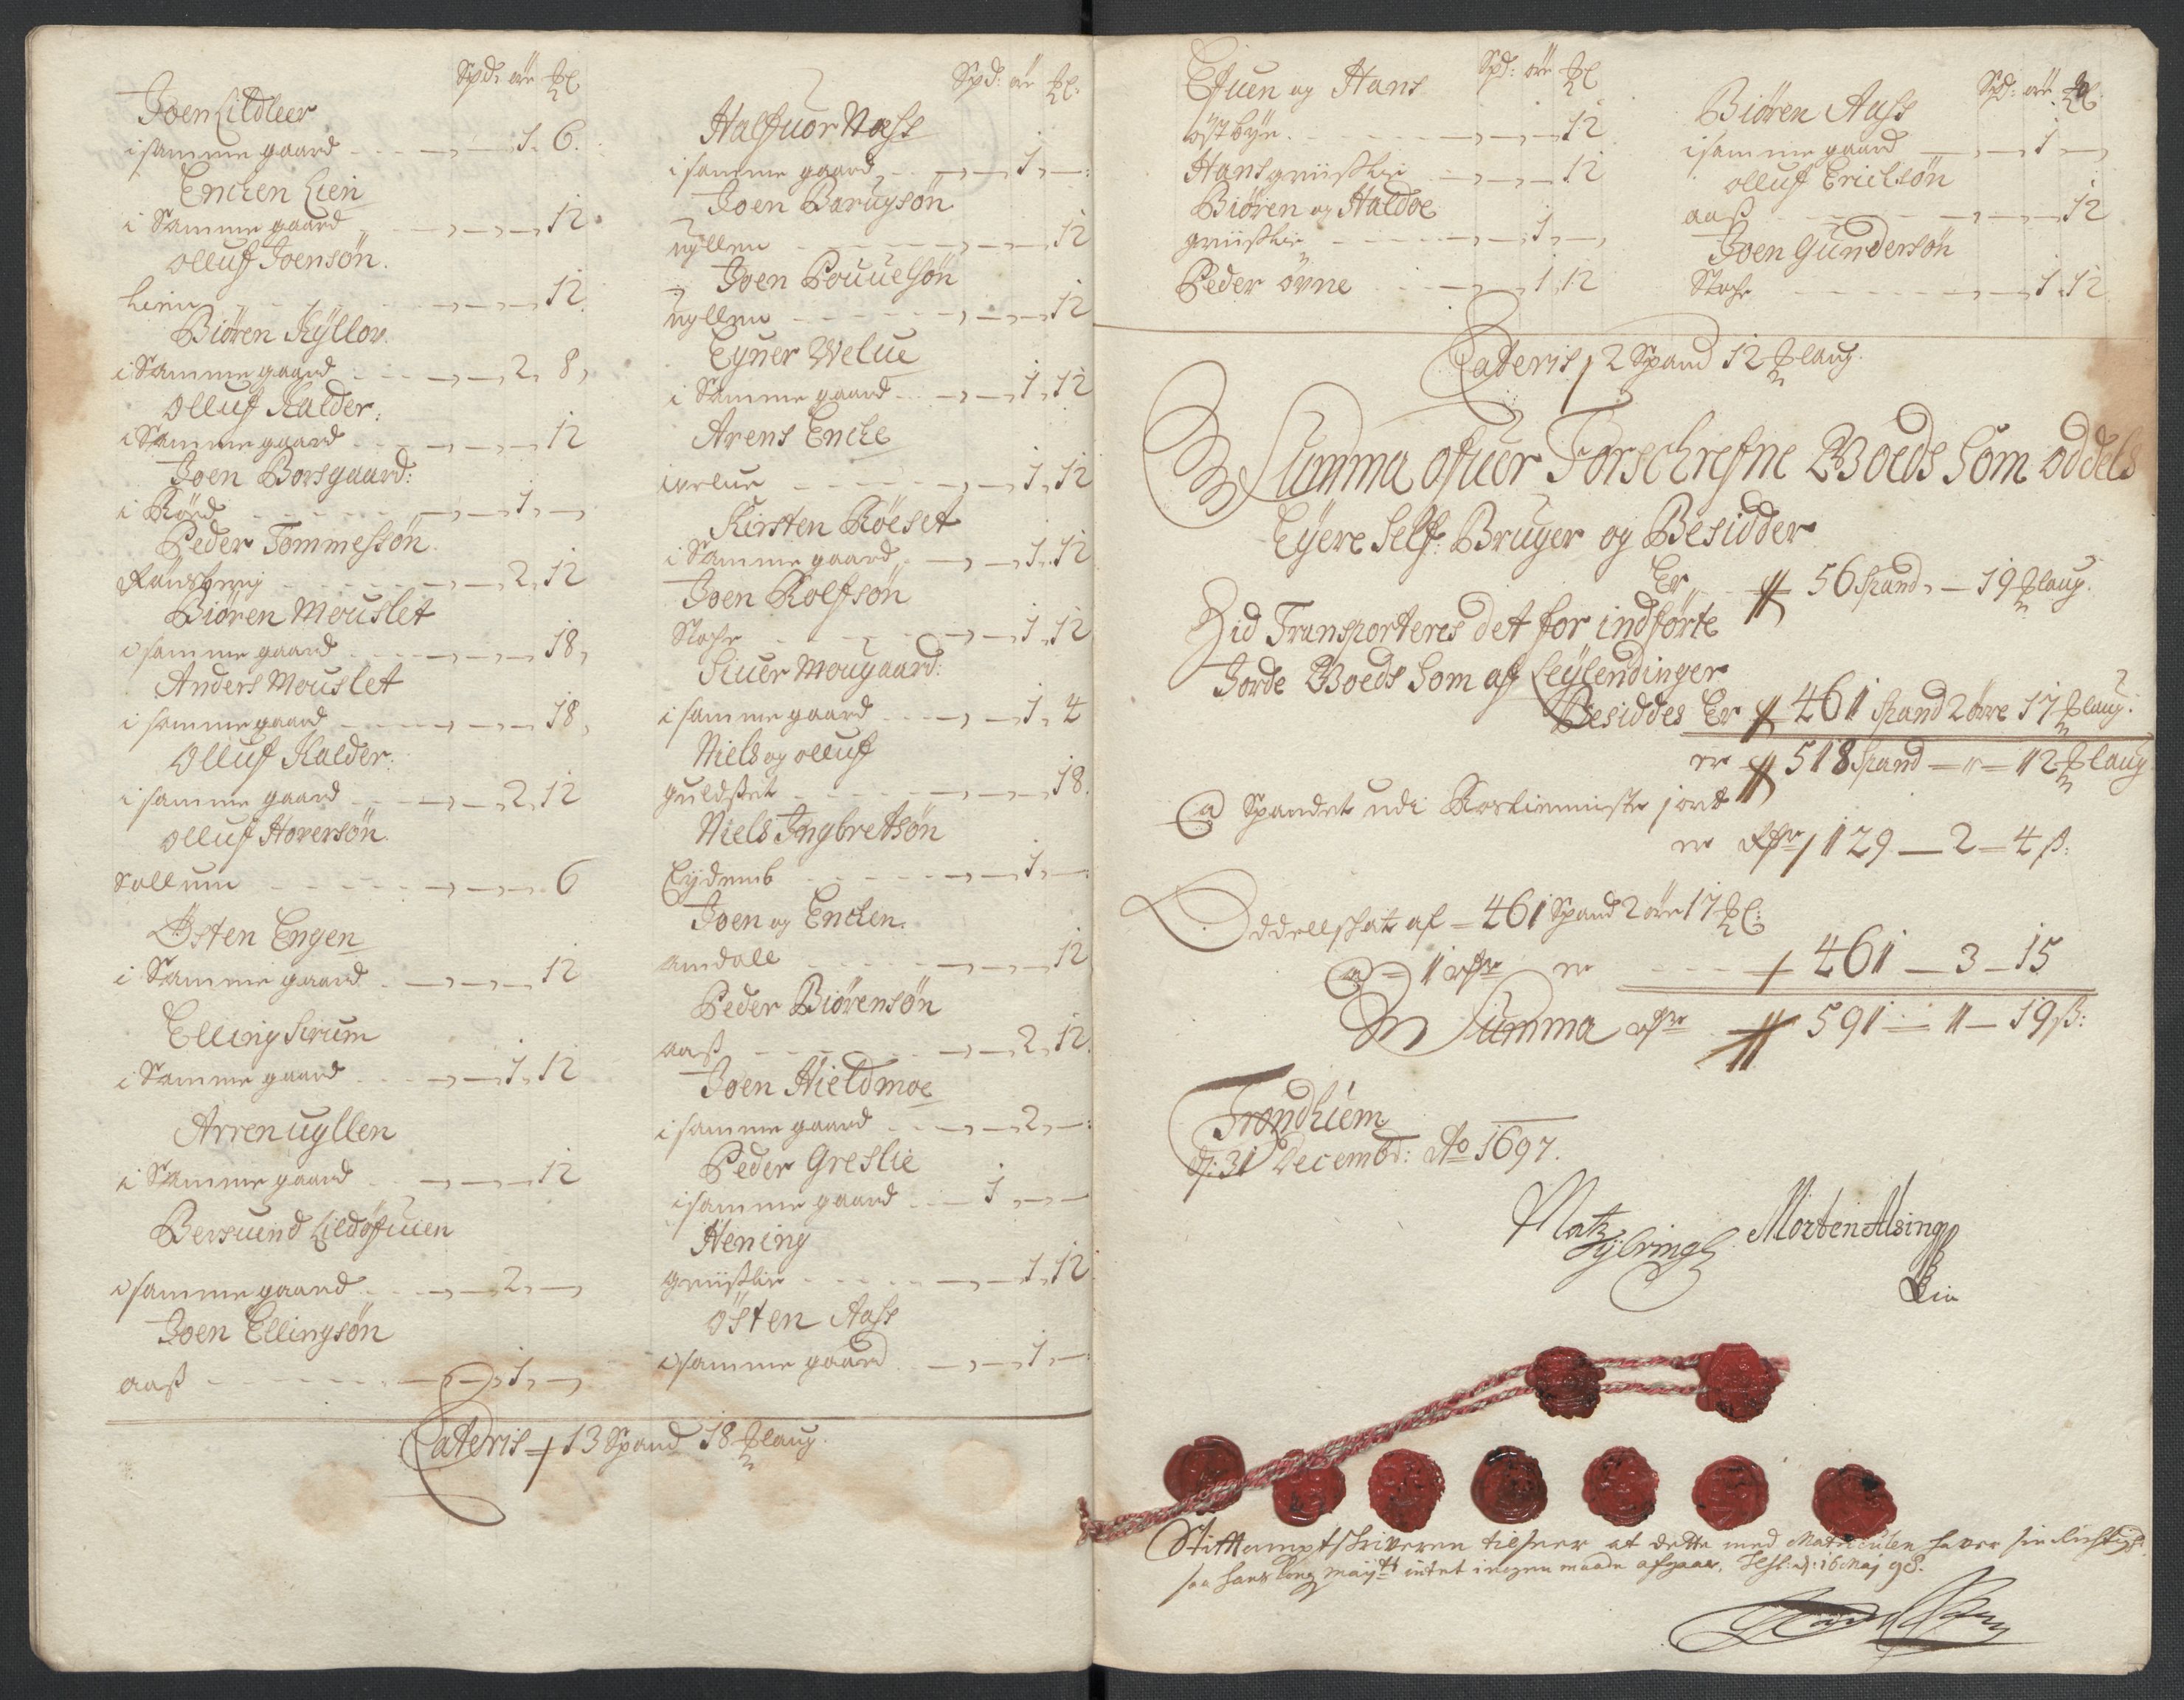 Spd: öre Mℓ
Joen Lildleer
i samme gaard - - - 1. 6.
Enchen Lien
i Samme gaard - - - 12.
Olluf Joensön.
Lien - - - 12.
Biören Kÿllov.
i Samme gaard - - 2, 8,
Olluf Kalder.
i Samme gaard - - - 12
Joen Borsgaard:
i Rörd - - 1, -
Peder Tommesön.
- - 2, 12
Biören Mouslet
i samme gaard - - - 18,
Anders Mouslet
i samme gaard - - - 18,
Olluf Kalder:
i samme gaard - - 2, 12
Olluf Hoversön.
Sollum - - - 6
Östen Engen
i Samme gaard - - - 12
Elling Sirum
i Samme gaard - - 1, 12
Arren uyllen
i Samme gaard - - - 12
Bersuend Lildöfuien
i samme gaard - - 2, -
Joen Ellingsön
aaß - - 1, -
Lateris 13 Spand 18 Mlaug.
Spd: öre Mℓ:
Halfuor Næss
i samme gaard - - 1, -:
Joen Barugsön
uyllen - - - 12
Joen Pouuelsön
uyllen - - - 12
Eyner Welue
i Samme gaard - - 1, 12
Arens Enche
i velue - - 1, 12
Kirsten Röeset
i Samme gaard - - 1. 12
Joen Rolfsön
Stocke - - 1, 12
Siuer Mougaard:
i samme gaard - - 1, 4
Niels og olluf
guldset - - - 18.
Niels Ingbretsön
Eÿdemb - - 1, -
Joen og Enchen.
amdall - - - 12
Peder Biörensön
aaß - - 2, 12.
Joen Hieldmoe
i samme gaard - - 2, -:
Peder Greslie
i samme gaard - - 1, -
Hening
grüslie - - 1, 12
Östen Aass
i samme gaard - - 1, -:
Spd: öre Mℓ
Efuen og Hans
östbÿe. - - - 12
Hans grüslie - - - 12
Biören og Haldoe
grüslie - - 1, -
Peder övne - - 1, 12
Spd: öre Mℓ
Biören Aass
i samme gaard - - 1, -
olluf Ericlsön
aaß - - - 12
Joen Gundersön
Stocke - - 1. 12
Lateris 2 Spand 12 Mlaug.
Summa ofuer Forschrefne Woeds Som oddels
Eÿere Self: Bruger og Besidder
Er - 56 Spand, - 19 Mlaug.
Hid Transporteres det for indförte
Jorde Woeds Som af Leÿlendinger
Besiddes Er 461 Spand 2 öre 17 Mlaug:
er 518 Spand - " - 12 Mlaug
a Spandet udi Rostienniste jord
er Rdr 129 - 2 - 4 ß:
Oddellskat af - 461 Spand 2 öre 17 Mℓ:
a - 1 Rdr er - - 461 - 3 - 15
Summa Rdr 591 - 1 - 19 ß:
Trondhiem
d: 31 Decembr: Ao 1697.
Morten Alsing
Stiftamptskriveren tilseer at dette med Matriculen haver sin Rictighed
saa hans Kong Mayts intet i nogen maade afgaar. d: 16 Maj 98.